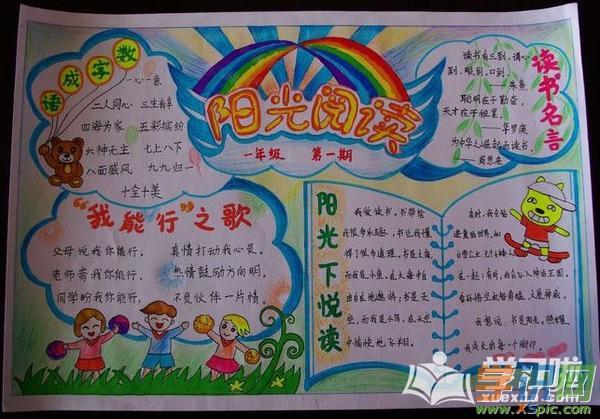 阳光阅读
一年级 第一期
数字成语
一心一意
二人同心 三生有幸
四海为家 五彩缤纷
六神无主 七上八下
八面威风 九九归一
十全十美
读书名言
读书有三到，谓心
到，眼到，口到。
——朱熹
聪明在于勤奋，
天才在于积累。
——华罗庚
为中华之崛起而读书。
——周恩来
“我能行”之歌
父母说我你能行，
真情打动我心灵。
老师常我你能行，
热情鼓励方向明。
同学盼我你能行，
不负伙伴一片情。
阳光下悦读
我爱读书，书带给
我很多乐趣，书让我懂
得了很多道理。书是大海，
而我是小鱼，在大海中自
由自在地遨游；书是天
空，而我是小鸟，在天空
中愉快地飞翔。
有时，我会走
进童话世界，如
白雪公主
在一起；有时，我会进入神话王国，
看孙悟空
我想说：书是阳光，照耀
我成长的每一个脚印。
学习啦
xuexila.com
www.XSpic.com